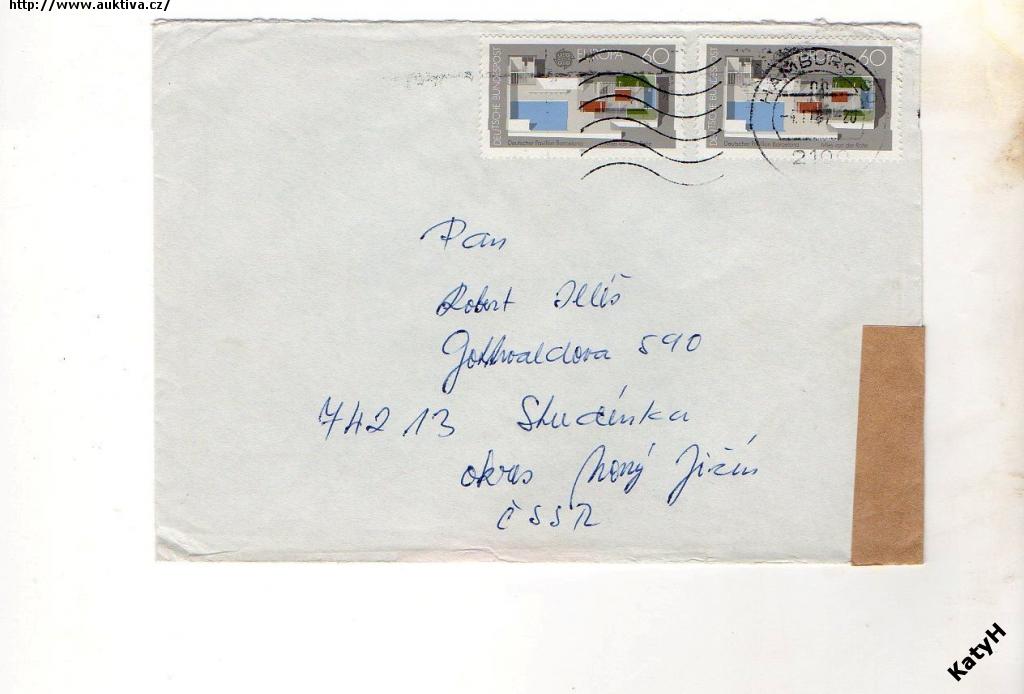 http://www.auktiva.cz/
DEUTSCHE BUNDESPOST EUROPA 60
Deutscher Pavillon Barcelona
DEUTSCHE BUNDESPOST 60
Deutscher Pavillon Barcelona Mies van der Rohe
HAMBURG
20
2100
Pan
Robert Illéš
Gottwaldova 590
742 13 Studénka
okres Nový Jičín
ČSSR
KatyH